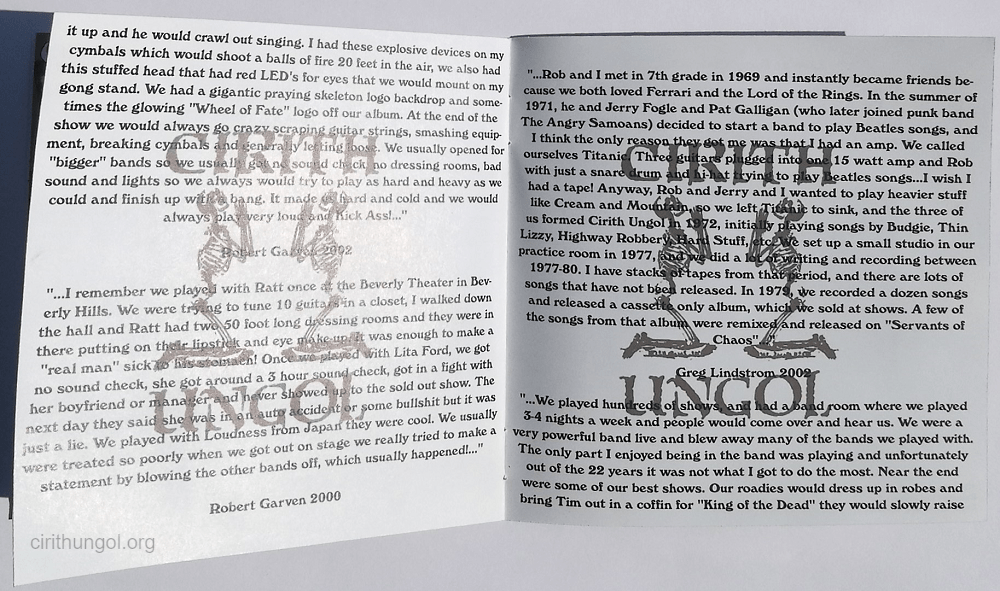 it up and he would crawl out singing. I had these explosive devices on my
cymbals which would shoot a balls of fire 20 feet in the air, we also had
this stuffed head that had red LED's for eyes that we would mount on my
gong stand. We had a gigantic praying skeleton logo backdrop and some-
times the glowing "Wheel of Fate" logo off our album. At the end of the
show we would always go crazy scraping guitar strings, smashing equip-
ment, breaking cymbals and generally letting loose. We usually opened for
"bigger" bands so we usually got no sound check, no dressing rooms, bad
sound and lights so we always would try to play as hard and heavy as we
could and finish up with a bang. It made us hard and cold and we would
always play very loud and Kick Ass!..."
Robert Garven 2002
"...I remember we played with Ratt once at the Beverly Theater in Bev-
erly Hills. We were trying to tune 10 guitars in a closet, I walked down
the hall and Ratt had two 50 foot long dressing rooms and they were in
there putting on their lipstick and eye make up, it was enough to make a
"real man" sick to his stomach! Once we played with Lita Ford, we got
no sound check, she got around a 3 hour sound check, got in a fight with
her boyfriend or manager and never showed up to the sold out show. The
next day they said she was in an auto accident or some bullshit but it was
just a lie. We played with Loudness from Japan they were cool. We usually
were treated so poorly when we got out on stage we really tried to make a
statement by blowing the other bands off, which usually happened!..."
Robert Garven 2000
CIRITH
UNGOL
cirithungol.org
"...Rob and I met in 7th grade in 1969 and instantly became friends be-
cause we both loved Ferrari and the Lord of the Rings. In the summer of
1971, he and Jerry Fogle and Pat Galligan (who later joined punk band
The Angry Samoans) decided to start a band to play Beatles songs, and
I think the only reason they got me was that I had an amp. We called
ourselves Titanic. Three guitars plugged into one 15 watt amp and Rob
with just a snare drum and hi-hat trying to play Beatles songs...I wish I
had a tape! Anyway, Rob and Jerry and I wanted to play heavier stuff
like Cream and Mountain, so we left Titanic to sink, and the three of
us formed Cirith Ungol in 1972, initially playing songs by Budgie, Thin
Lizzy, Highway Robbery, Hard Stuff, etc. We set up a small studio in our
practice room in 1977, and we did a lot of writing and recording between
1977-80. I have stacks of tapes from that period, and there are lots of
songs that have not been released. In 1979, we recorded a dozen songs
and released a cassette only album, which we sold at shows. A few of
the songs from that album were remixed and released on "Servants of
Chaos"..."
Greg Lindstrom 2002
"...We played hundreds of shows, and had a band room where we played
3-4 nights a week and people would come over and hear us. We were a
very powerful band live and blew away many of the bands we played with.
The only part I enjoyed being in the band was playing and unfortunately
out of the 22 years it was not what I got to do the most. Near the end
were some of our best shows. Our roadies would dress up in robes and
bring Tim out in a coffin for "King of the Dead" they would slowly raise
CIRITH
UNGOL